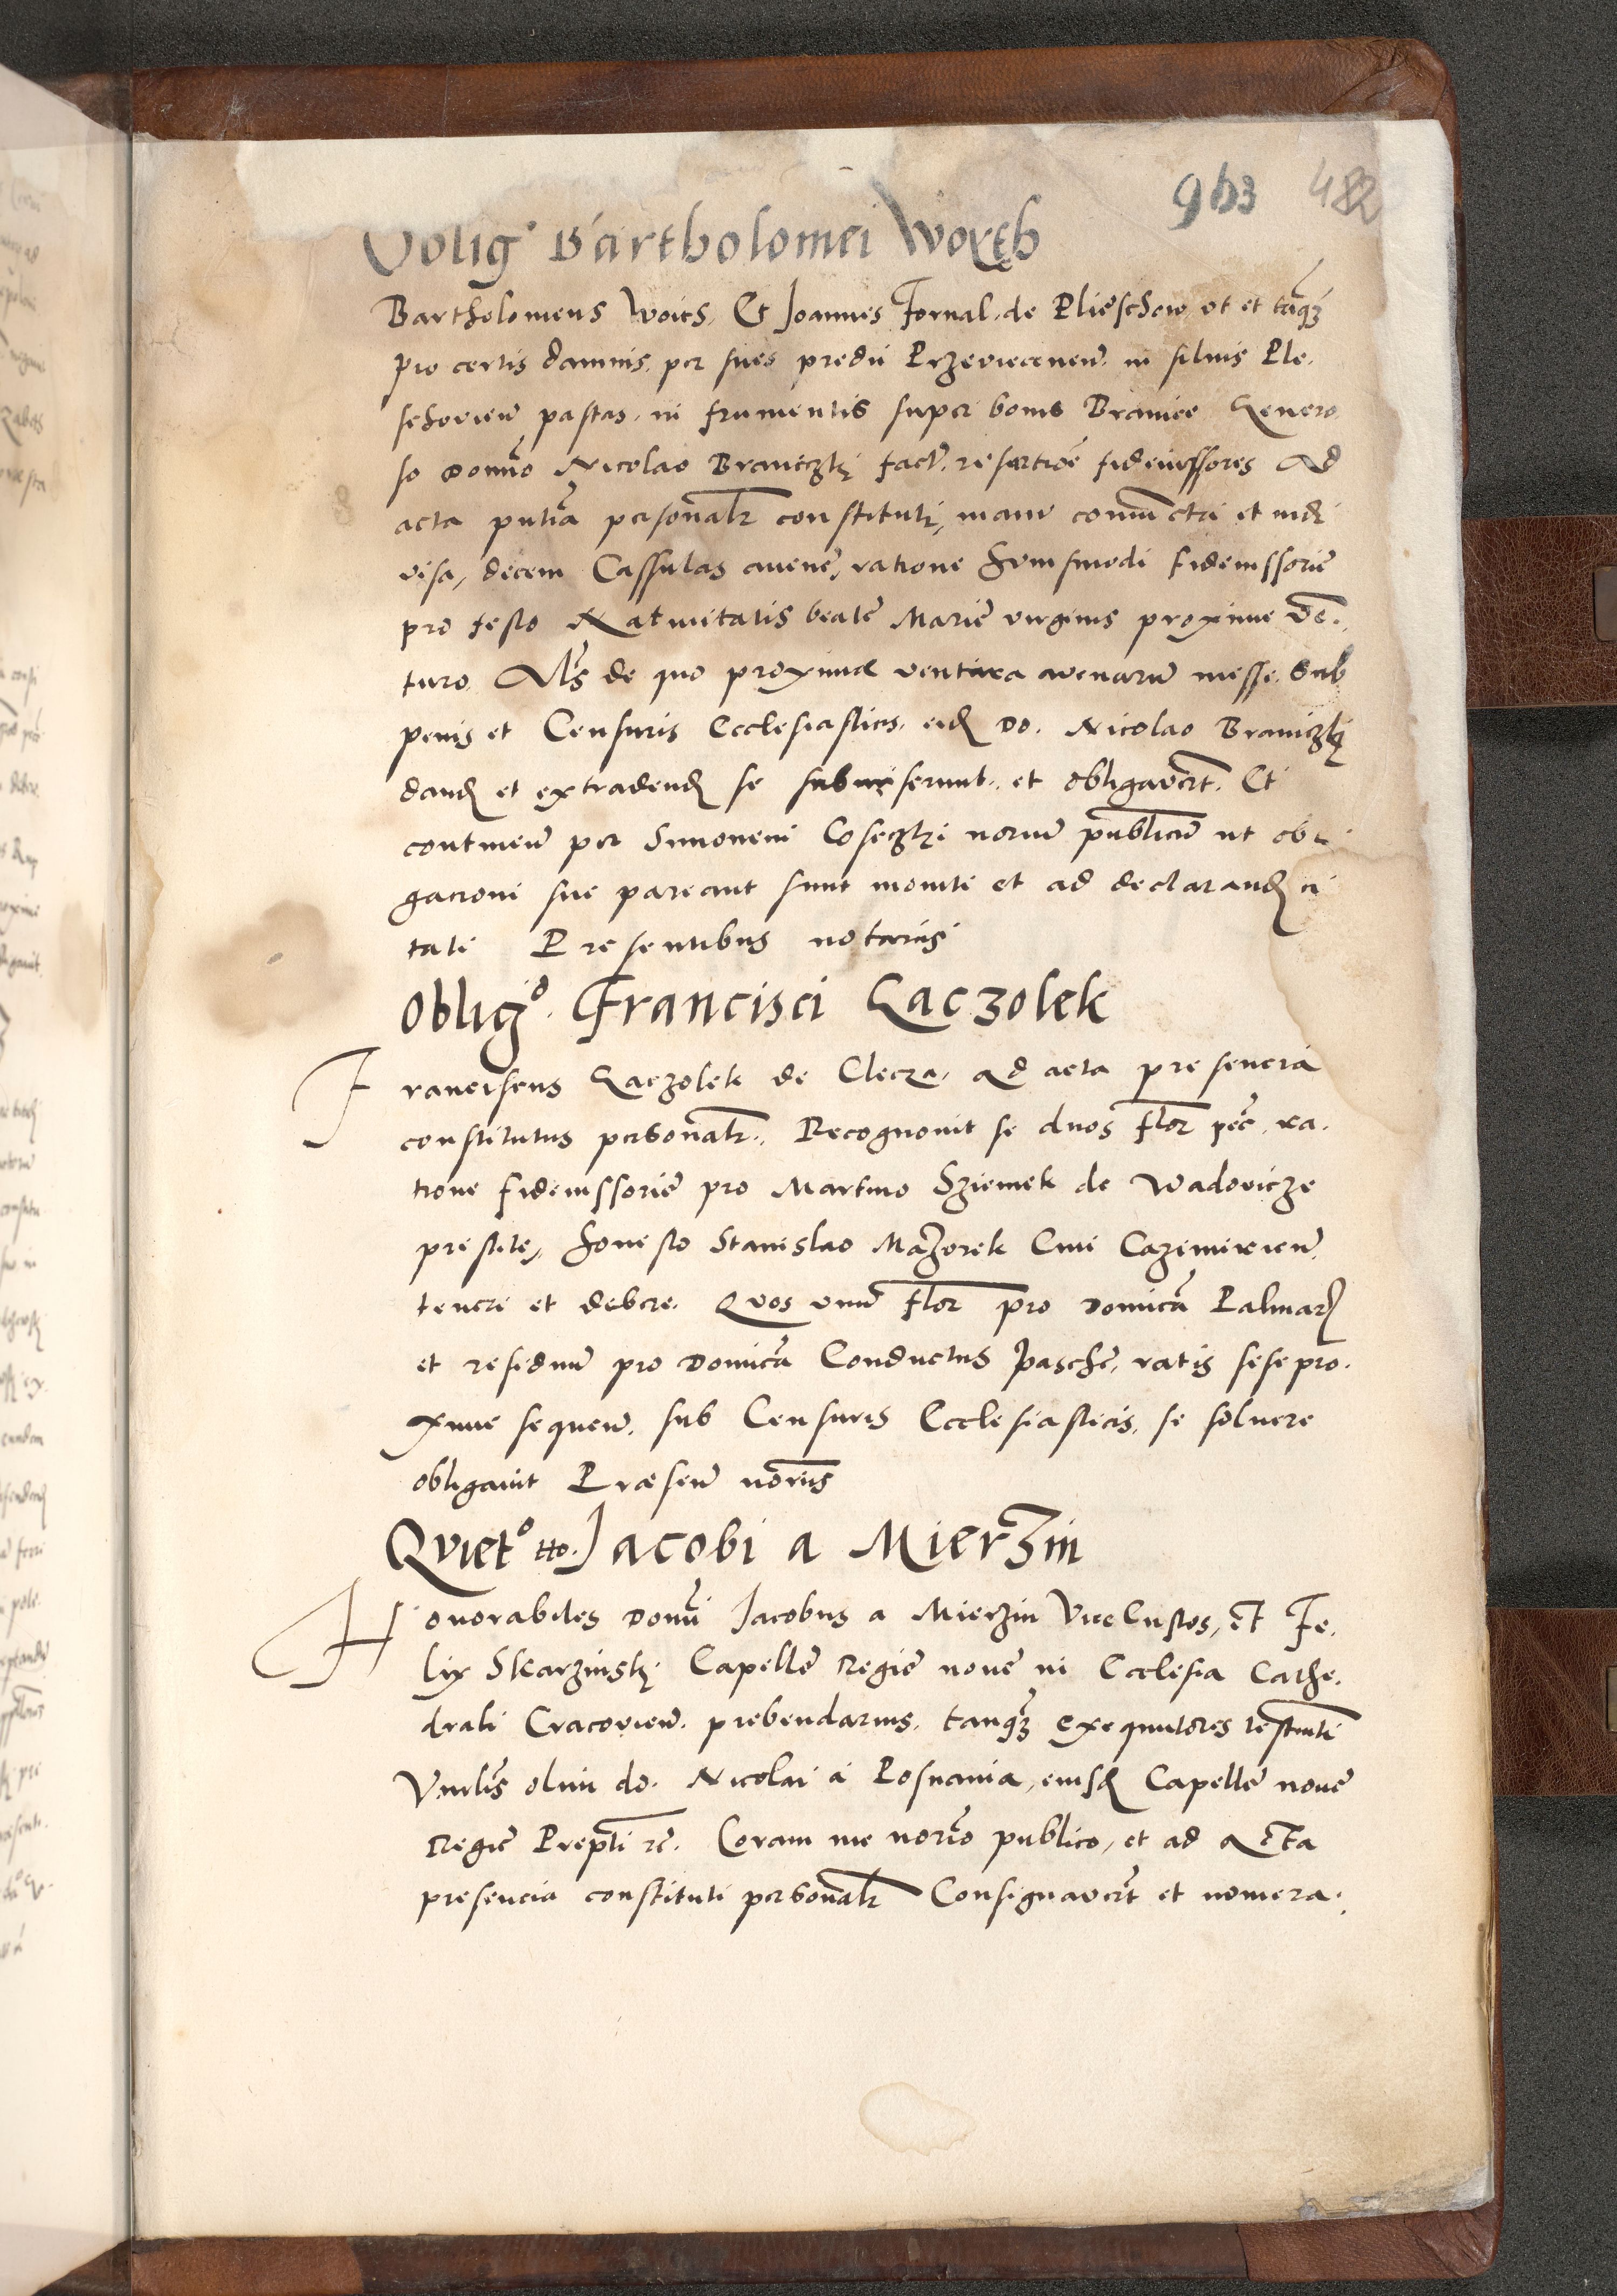 963 482
Oblig° Bartholomei Woyth
Bartholomeus Woits, Et Joannes Fornal de Plieschow ut et tanq̃
pro certis damnis per sues predii Przeviecenen̄ in siluis Ple.
schovien̄ pastas, in frumentis super bonis Branice Genero
so Domn̄o Nicolao Braniczky fact. fideiussores Ad
acta pn̄tia personalr constituti, manu coniuncta et indi
visa, decem Cassulas avene, ratione huiusmodi fideiussorie
pro festo Natiuitatis beate Marie virginis proxime ve.
turo Als de quo proxima ventura avenarum messe. Sub
penis et Censuris Ecclesiasticis, eid Do. Nicolao Braniczky
dand et extradend se serunt, et obligavert. Et
continen̄ per Simonem Coseczki norum publicum ut obli
gacioni sue pareant sunt moniti et ad declarand ci
tati Presentibus notariis
Oblig°. Francisci Gaczolek
Franciscus Gaczolek de Clecza, ad acta presencia
constitutus personalr. Recognovit se duos flor pec̄ ra.
tione fideiussorie pro Martino Sziemek de Wadovicze
prestite, honesto Stanislao Mazorek Ciui Cazimirien̄.
teneri et debere. Quos unum flor pro Domica Palmar
et residuum pro Domica Conductus Pasche, ratis sese pro.
xime sequen̄. sub Censuris Ecclesiasticis, se soluere
obligauit Præsen̄ noriis
Quiet° tto. Jacobi a Mierzin
Honorabiles Domn̄i Jacobus a Mierzin ViceCustos, et Fe.
lix Skarzinsky Capelle Regie noue in Ecclesia Cathe.
drali Cracovien̄. prebendarius, tanq̃ Exequutores testm̄ti
Vnrlis olim do. Nicolai a Posnania, eiusd Capelle noue
Regie Prepti rc̄. Coram me norio publico, et ad Acta
presencia constituti personalr Consignavert et numera.